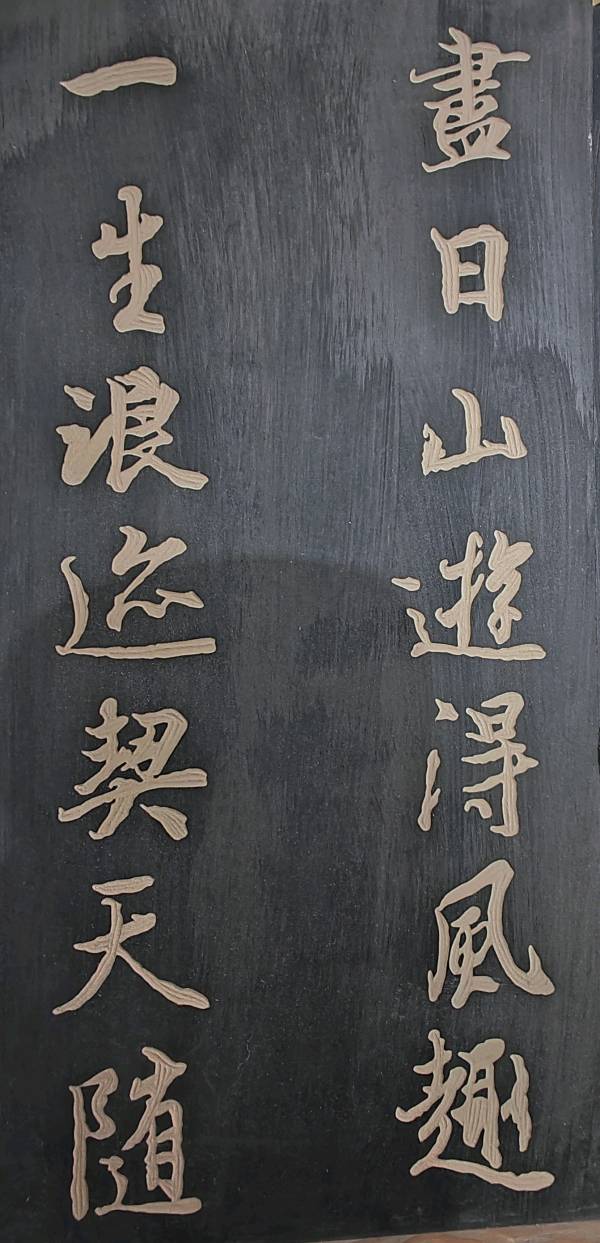 盡日山遊得風趣
一生浪迹契天随